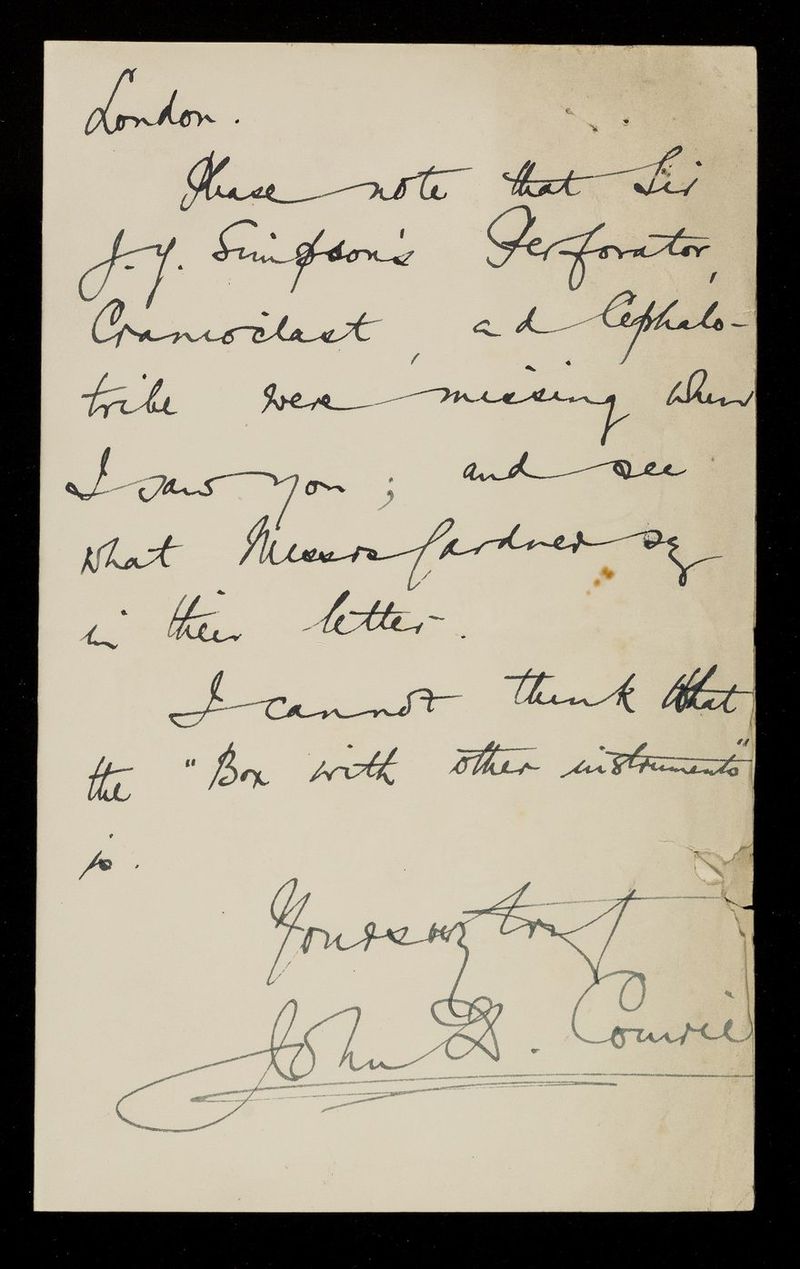 London.
Please note that Sir
J. Y. Simpson's Perforator,
Cranioclast, ad Cephalo-
tribe were missing when
I saw you; and see
what Messrs Gardner say
in their letter.
I cannot think that
the "Box with other instruments"
is.
Yours very truly
John D. Comrie